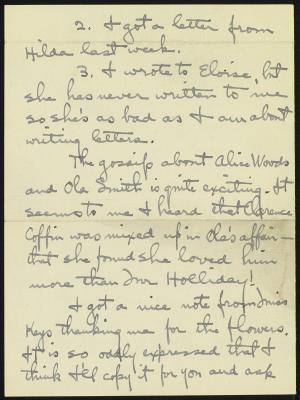 2. I got a letter from
Hilda last week.
3. I wrote to Eloise, but
she has never written to me
so she's as bad as I am about
writing letters.
The gossip about Alice Woods
and Ola Smith is quite exciting. It
seems to me I heard that Clarence
Coffin was mixed up in Ola's affair –
that she found she loved him
more than Holliday!
I got a nice note from Miss
Keys thanking me for the flowers.
It is so oddly expressed that I
think I'll copy it for you and ask